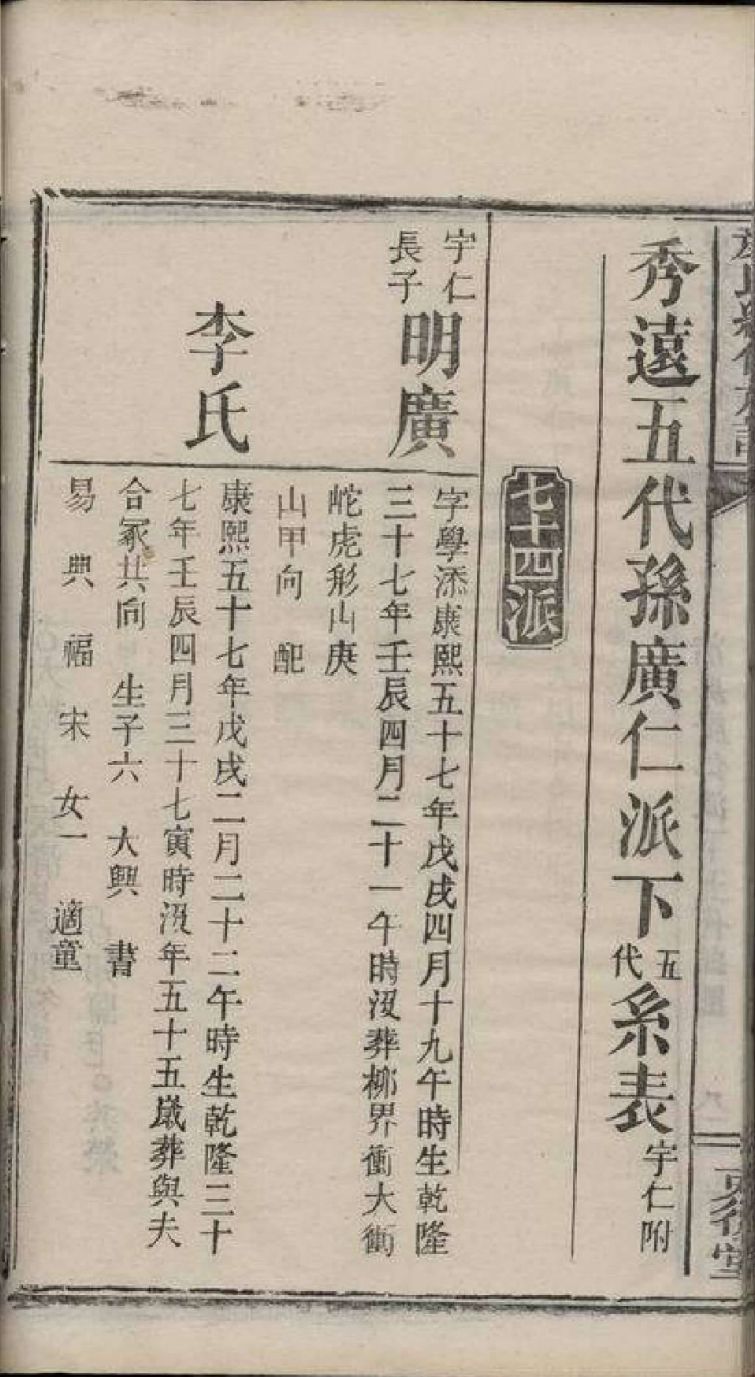 秀遠五代孫廣仁派下五代系表宇仁附
七十四派
宇仁長子
明廣
字學添康熙五十七年戊戌四月十九午時生乾隆
三十七年壬辰四月二十一午時沒葬栁界衝大衝
蛇虎形山庚
山甲向 配
李氏
康熙五十七年戊戌二月二十二午時生乾隆三十
七年壬辰四月三十七寅時沒年五十五歲葬與夫
合冢共向 生子六 大興 書
易 典 福 宋 女一 適童